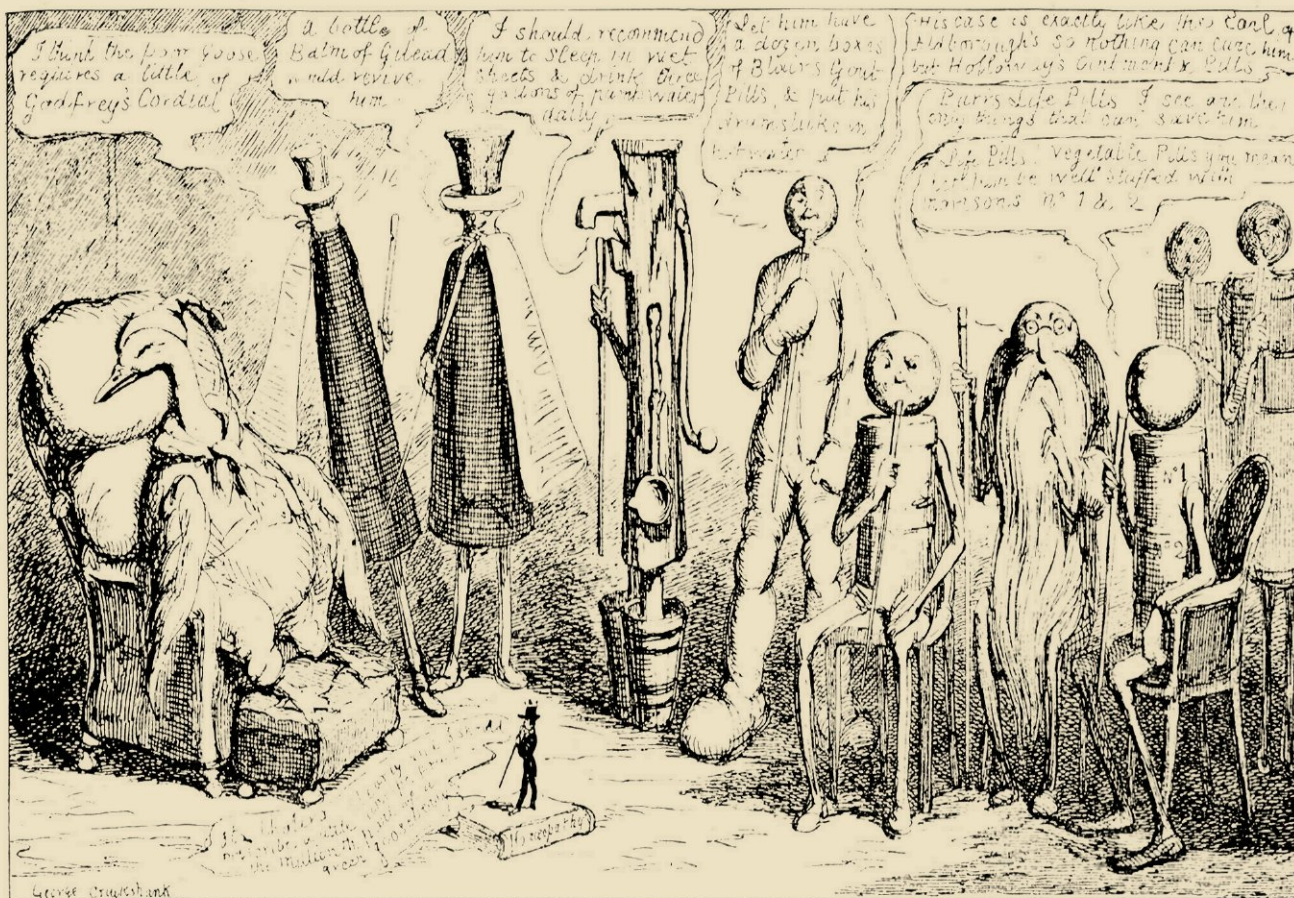 I think the poor Goose
requires a little of
Godfrey's Cordial
a bottle of
Balm of Gilead
would revive
him
I should recommend
him to Sleep in wet
sheets & drink three
gallons of pump water
daily
Let him have
a dozen boxes
of Blairs Gout
Pills, & put his
drumsticks in
hot water
His case is exactly like the Earl of
Aldborough's so nothing can cure him
but Holloway's Ointment & Pills
Parrs Life Pills I see are the
only things that can save him
Life Pills! Vegetable Pills you mean
let him be well stuffed with
Morisons No 1 & 2
No 1
No 2
the
part of a
green
George Cruikshank